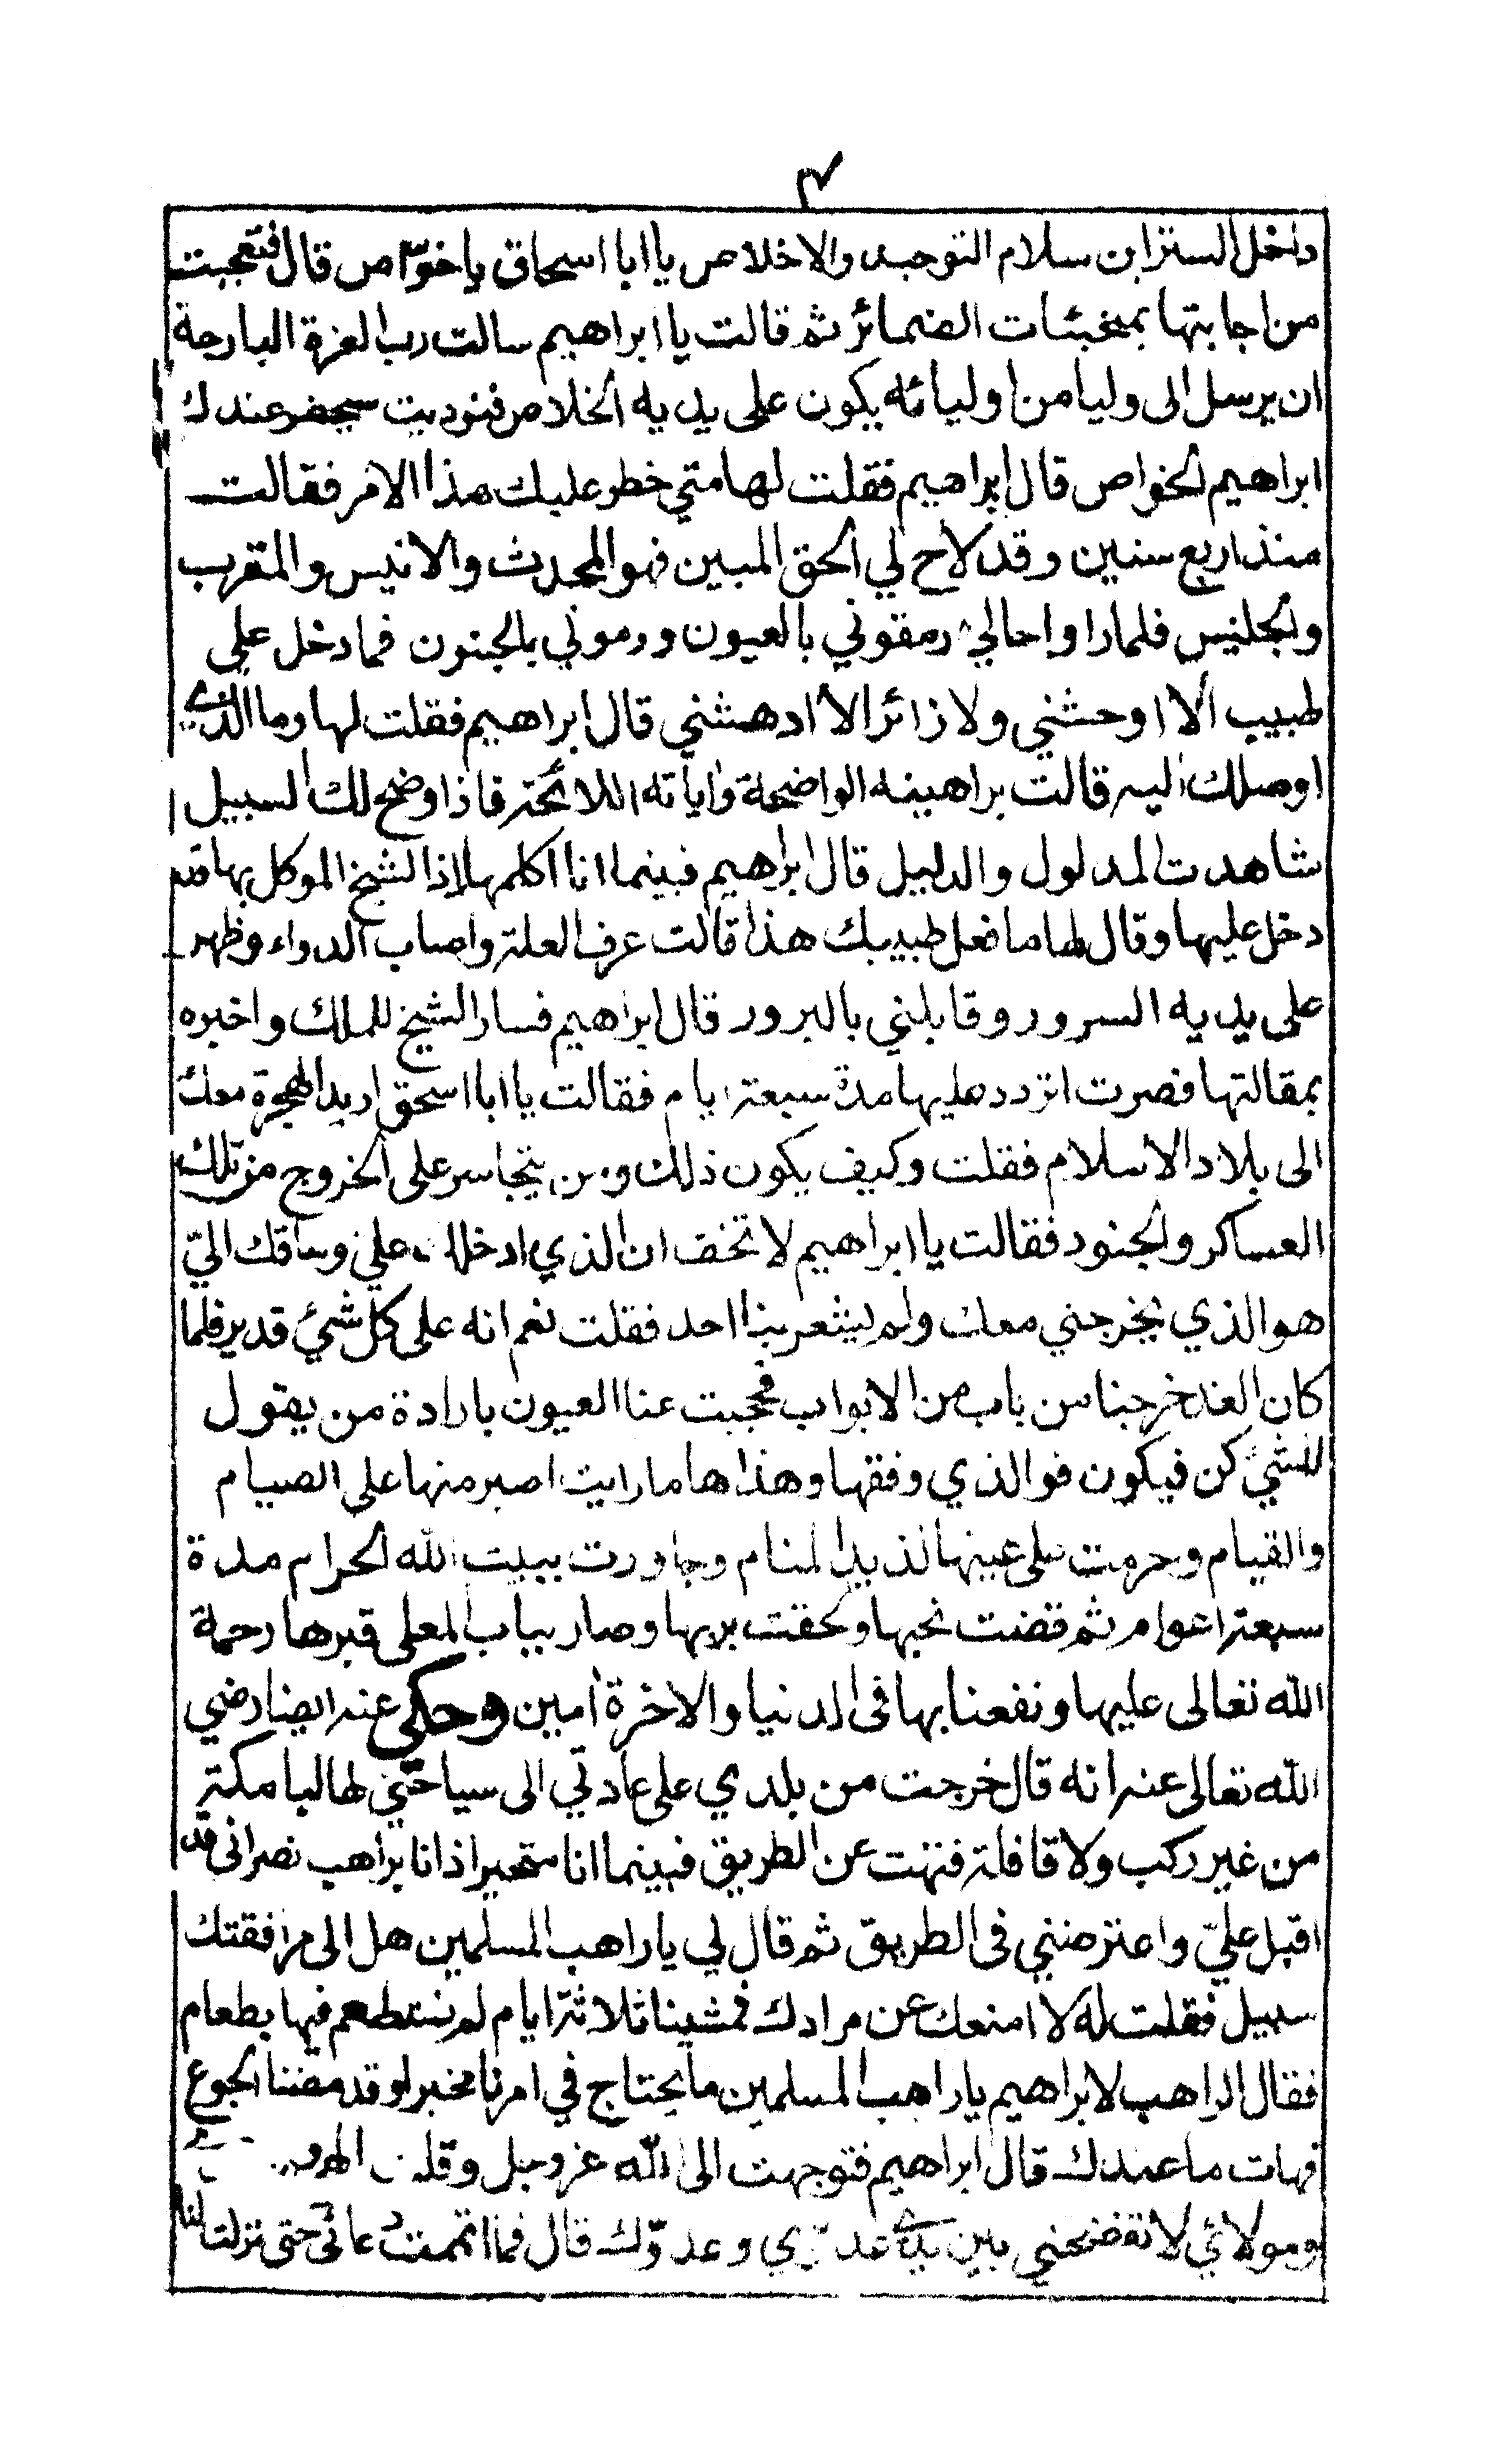 ٣
داخل الستر اين سلام التوحيد والاخلاص يا ابا اسحاق ياخوّاص قال فتعجبت
من اجابتها بمخبئات الضمائر ثم قالت يا ابراهيم سالت رب العزة البارحة
ان يرسل الى وليا من اوليائه يكون على يديه الخلاص فنوديت سيحضر عندك
ابراهيم الخواص قال ابراهيم فقلت لها متي خطر عليك هذا الامر فقالت
منذ اربع سنين وقد لاح لي الحق المبين فهو المحدث والانيس والمقرب
والجليس فلما راوا حالي رمقوني بالعيون ورموني بالجنون فما دخل علي
طبيب الا اوحشني ولا زائر الا ادهشني قال ابراهيم فقلت لها وما الذي
اوصلك اليه قالت براهينه الواضحة واياته اللائحة فاذا وضح لك السبيل
شاهدت المدلول والدليل قال ابراهيم فبينما انا اكلمها اذا الشيخ الموكل بها قد
دخل عليها وقال لها ما فعل طبيبك هذا قالت عرف العلة واصاب الدواء وظهر
على يديه السرور وقابلني بالبرور قال ابراهيم فسار الشيخ للملك واخبره
بمقالتها فصرت اتردد عليها مدة سبعة ايام فقالت يا ابا اسحق اريد الهجرة معك
الى بلاد الاسلام فقلت وكيف يكون ذلك ومن يتجاسر على الخروج من تلك
العساكر والجنود فقالت يا ابراهيم لا تخف ان الذي ادخلك علي وساقك اليّ
هو الذي يخرجني معك ولم يشعر بنا احد فقلت نعم انه على كل شيء قدير فلما
كان الغد خرجنا من باب من الابواب فحجبت عنا العيون بارادة من يقول
للشيء كن فيكون فو الذي وفقها وهذا ها ما رايت اصبر منها على الصيام
والقيام وحرمت على عينها لذيذ المنام وجاورت ببيت الله الحرام مدة
سبعة اعوام ثم قضت نحبها ولحقت بربها وصار بباب المعلى قبرها رحمة
الله تعالى عليها ونفعنا بها فى الدنيا والاخرة امين وحكي عنه ايضا رضي
الله تعالى عنه انه قال خرجت من بلدي على عادتي الى سياحتي طالبا مكة
من غير ركب ولا قافلة فتهت عن الطريق فبينما انا متحير اذ انا براهب نصرانى قد
اقبل عليّ واعترضني فى الطريق ثم قال لي يا راهب المسلمين هل الى مرافقتك
سبيل فقلت له لا امنعك عن مرادك فمشينا ثلاثة ايام لم نستطعم فيها بطعام
فقال الراهب لابراهيم يا راهب المسلمين ما يحتاج في امرنا مخبر لو قد مضنا الجوع
فهات ما عندك قال ابراهيم فتوجهت الى الله عز وجل وقلت الهي
ومولائي لا تفضحني بين يدي عدوي وعدوّك قال فما اتممت دعائى حتى نزلت لنا